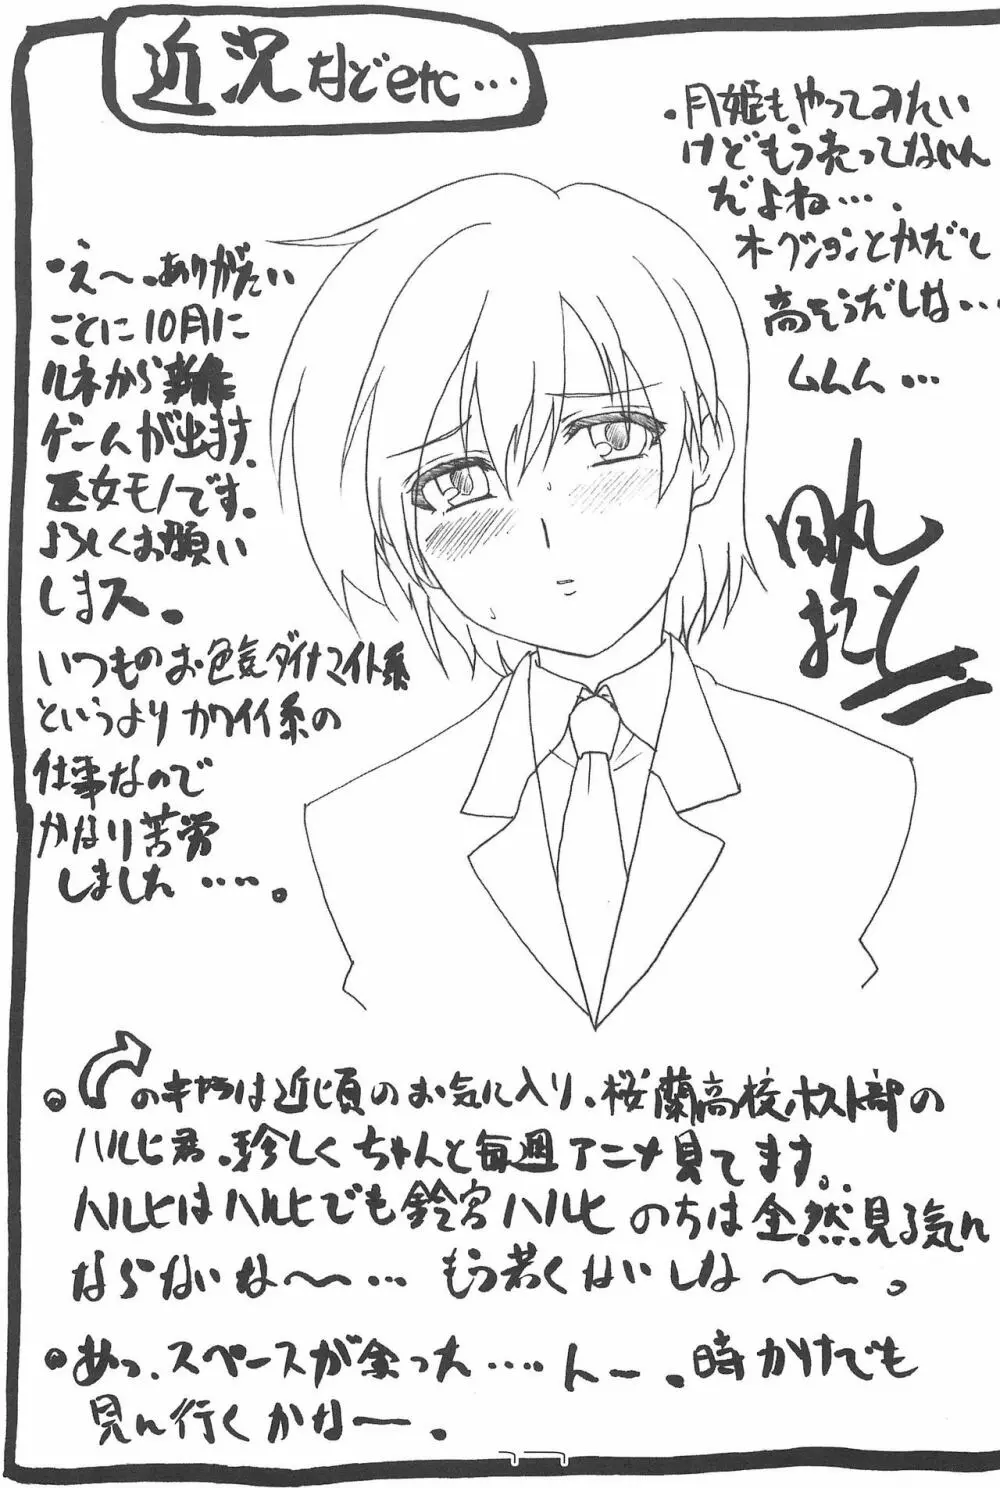 近況などetc…
・月姫もやってみたい
けどもう売ってないん
だよね…．
オークションとかだと
高そうだしな…
ムムム…
・え〜、ありがたい
ことに10月に
ルネから新作
ゲームが出ます。
巫女モノです。
よろしくお願い
しまス。
いつものお色気ダイナマイト系
というよりカワイイ系の
仕事なので
かなり苦労
しました…。
のキャラは近頃のお気に入り、桜蘭高校ホスト部の
ハルヒ君。珍しくちゃんと毎週アニメ見てます。
ハルヒはハルヒでも鈴宮ハルヒのちは全然見る気に
ならないな〜…もう若くないしな〜。
あっ、スペースが余った…んー。時かけでも
見に行くかな〜。